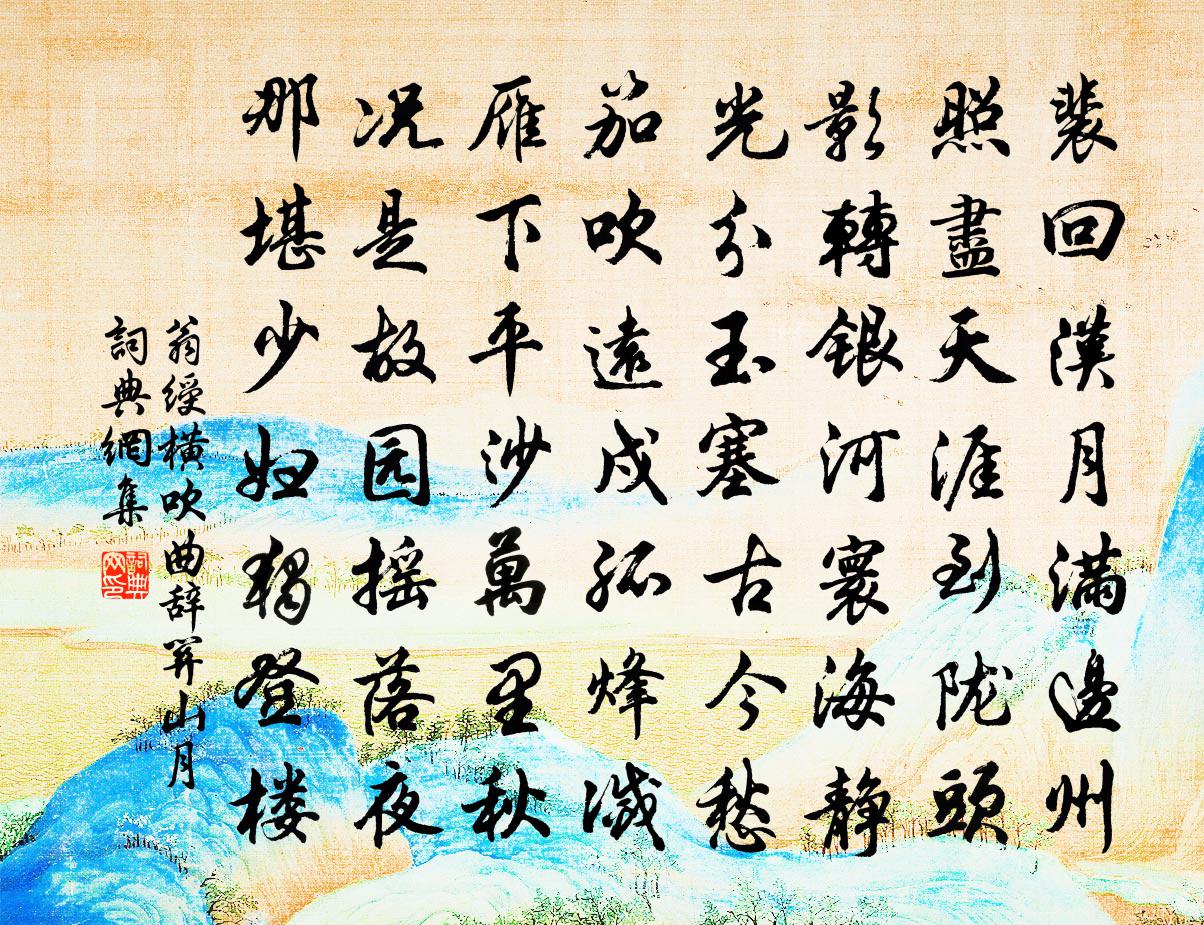 裴回漢月滿邊州
照盡天涯到陇頭
影轉銀河寰海静
光分玉塞古今愁
笳吹遠戍孤烽滅
雁下平沙萬里秋
况是故园摇落夜
那堪少妇獨登楼
翁綬橫吹曲辞關山月
詞典網集
詞典网印